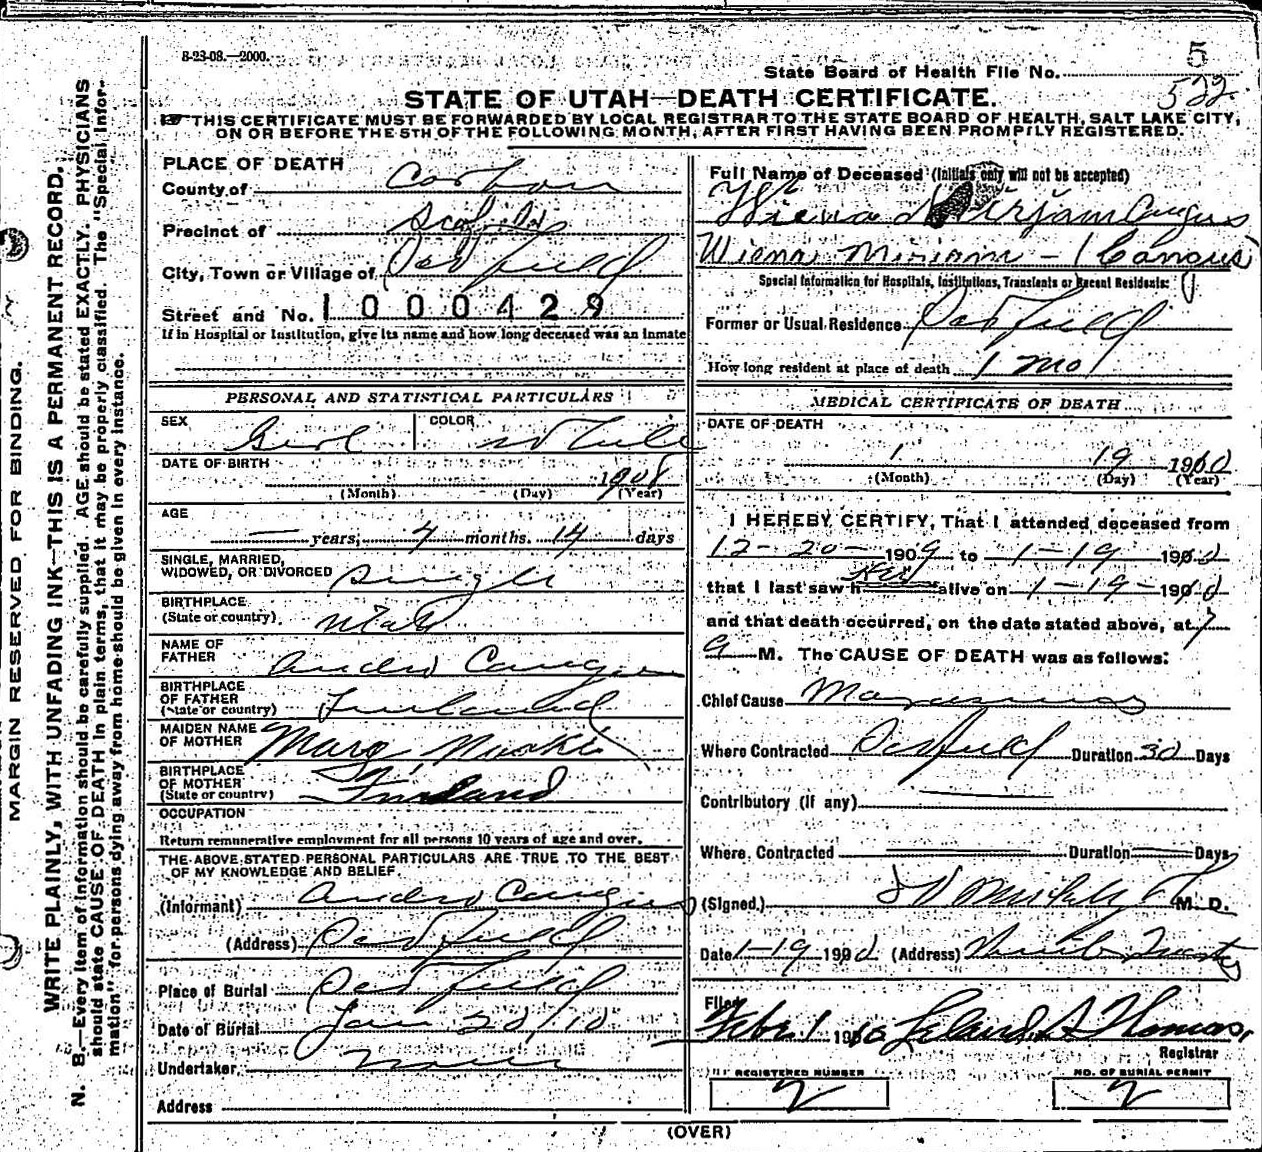 8-23-08.—2000.
State Board of Health File No. 5
522
STATE OF UTAH—DEATH CERTIFICATE.
THIS CERTIFICATE MUST BE FORWARDED BY LOCAL REGISTRAR TO THE STATE BOARD OF HEALTH, SALT LAKE CITY,
ON OR BEFORE THE 5TH OF THE FOLLOWING MONTH, AFTER FIRST HAVING BEEN PROMPTLY REGISTERED.
MARGIN RESERVED FOR BINDING.
WRITE PLAINLY, WITH UNFADING INK—THIS IS A PERMANENT RECORD.
N. B.—Every item of information should be carefully supplied. AGE should be stated EXACTLY. PHYSICIANS
should state CAUSE OF DEATH in plain terms, that it may be properly classified. The "Special Infor-
mation" for persons dying away from home should be given in every instance.
PLACE OF DEATH
County of Carbon
Precinct of Scofield
City, Town or Village of
Street and No. 1000429
If in Hospital or Institution, give its name and how long deceased was an inmate
PERSONAL AND STATISTICAL PARTICULARS
SEX Girl COLOR White
DATE OF BIRTH 1908
(Month) (Day) (Year)
AGE
— years, 7 months. 14 days
SINGLE, MARRIED,
WIDOWED, OR DIVORCED Single
BIRTHPLACE
(State or country) Utah
NAME OF
FATHER
BIRTHPLACE
OF FATHER
(State or country) Finland
MAIDEN NAME
OF MOTHER Mary
BIRTHPLACE
OF MOTHER
(State or country) Finland
OCCUPATION
Return remunerative employment for all persons 10 years of age and over.
THE ABOVE STATED PERSONAL PARTICULARS ARE TRUE TO THE BEST
OF MY KNOWLEDGE AND BELIEF.
(Informant)
(Address)
Place of Burial
Date of Burial Jan 20/10
Undertaker None
Address
Full Name of Deceased (Initials only will not be accepted)
Wiena Mirjam
Wiena Miriam —
Special Information for Hospitals, Institutions, Transients or Recent Residents:
Former or Usual Residence
How long resident at place of death 1 mo
MEDICAL CERTIFICATE OF DEATH
DATE OF DEATH
1 19 1910
(Month) (Day) (Year)
I HEREBY CERTIFY, That I attended deceased from
12-20- 1909 to 1-19 1910
that I last saw her alive on 1-19- 1910
and that death occurred, on the date stated above, at 7
a M. The CAUSE OF DEATH was as follows:
Chief Cause Marasmus
Where Contracted Duration 30 Days
Contributory (if any)
Where Contracted Duration Days
(Signed.) M. D.
Date 1-19 1910 (Address) Winter Quarters
Filed
Febr. 1 1910 Leland A Thomas,
Registrar
REGISTERED NUMBER
2
NO. OF BURIAL PERMIT
2
(OVER)